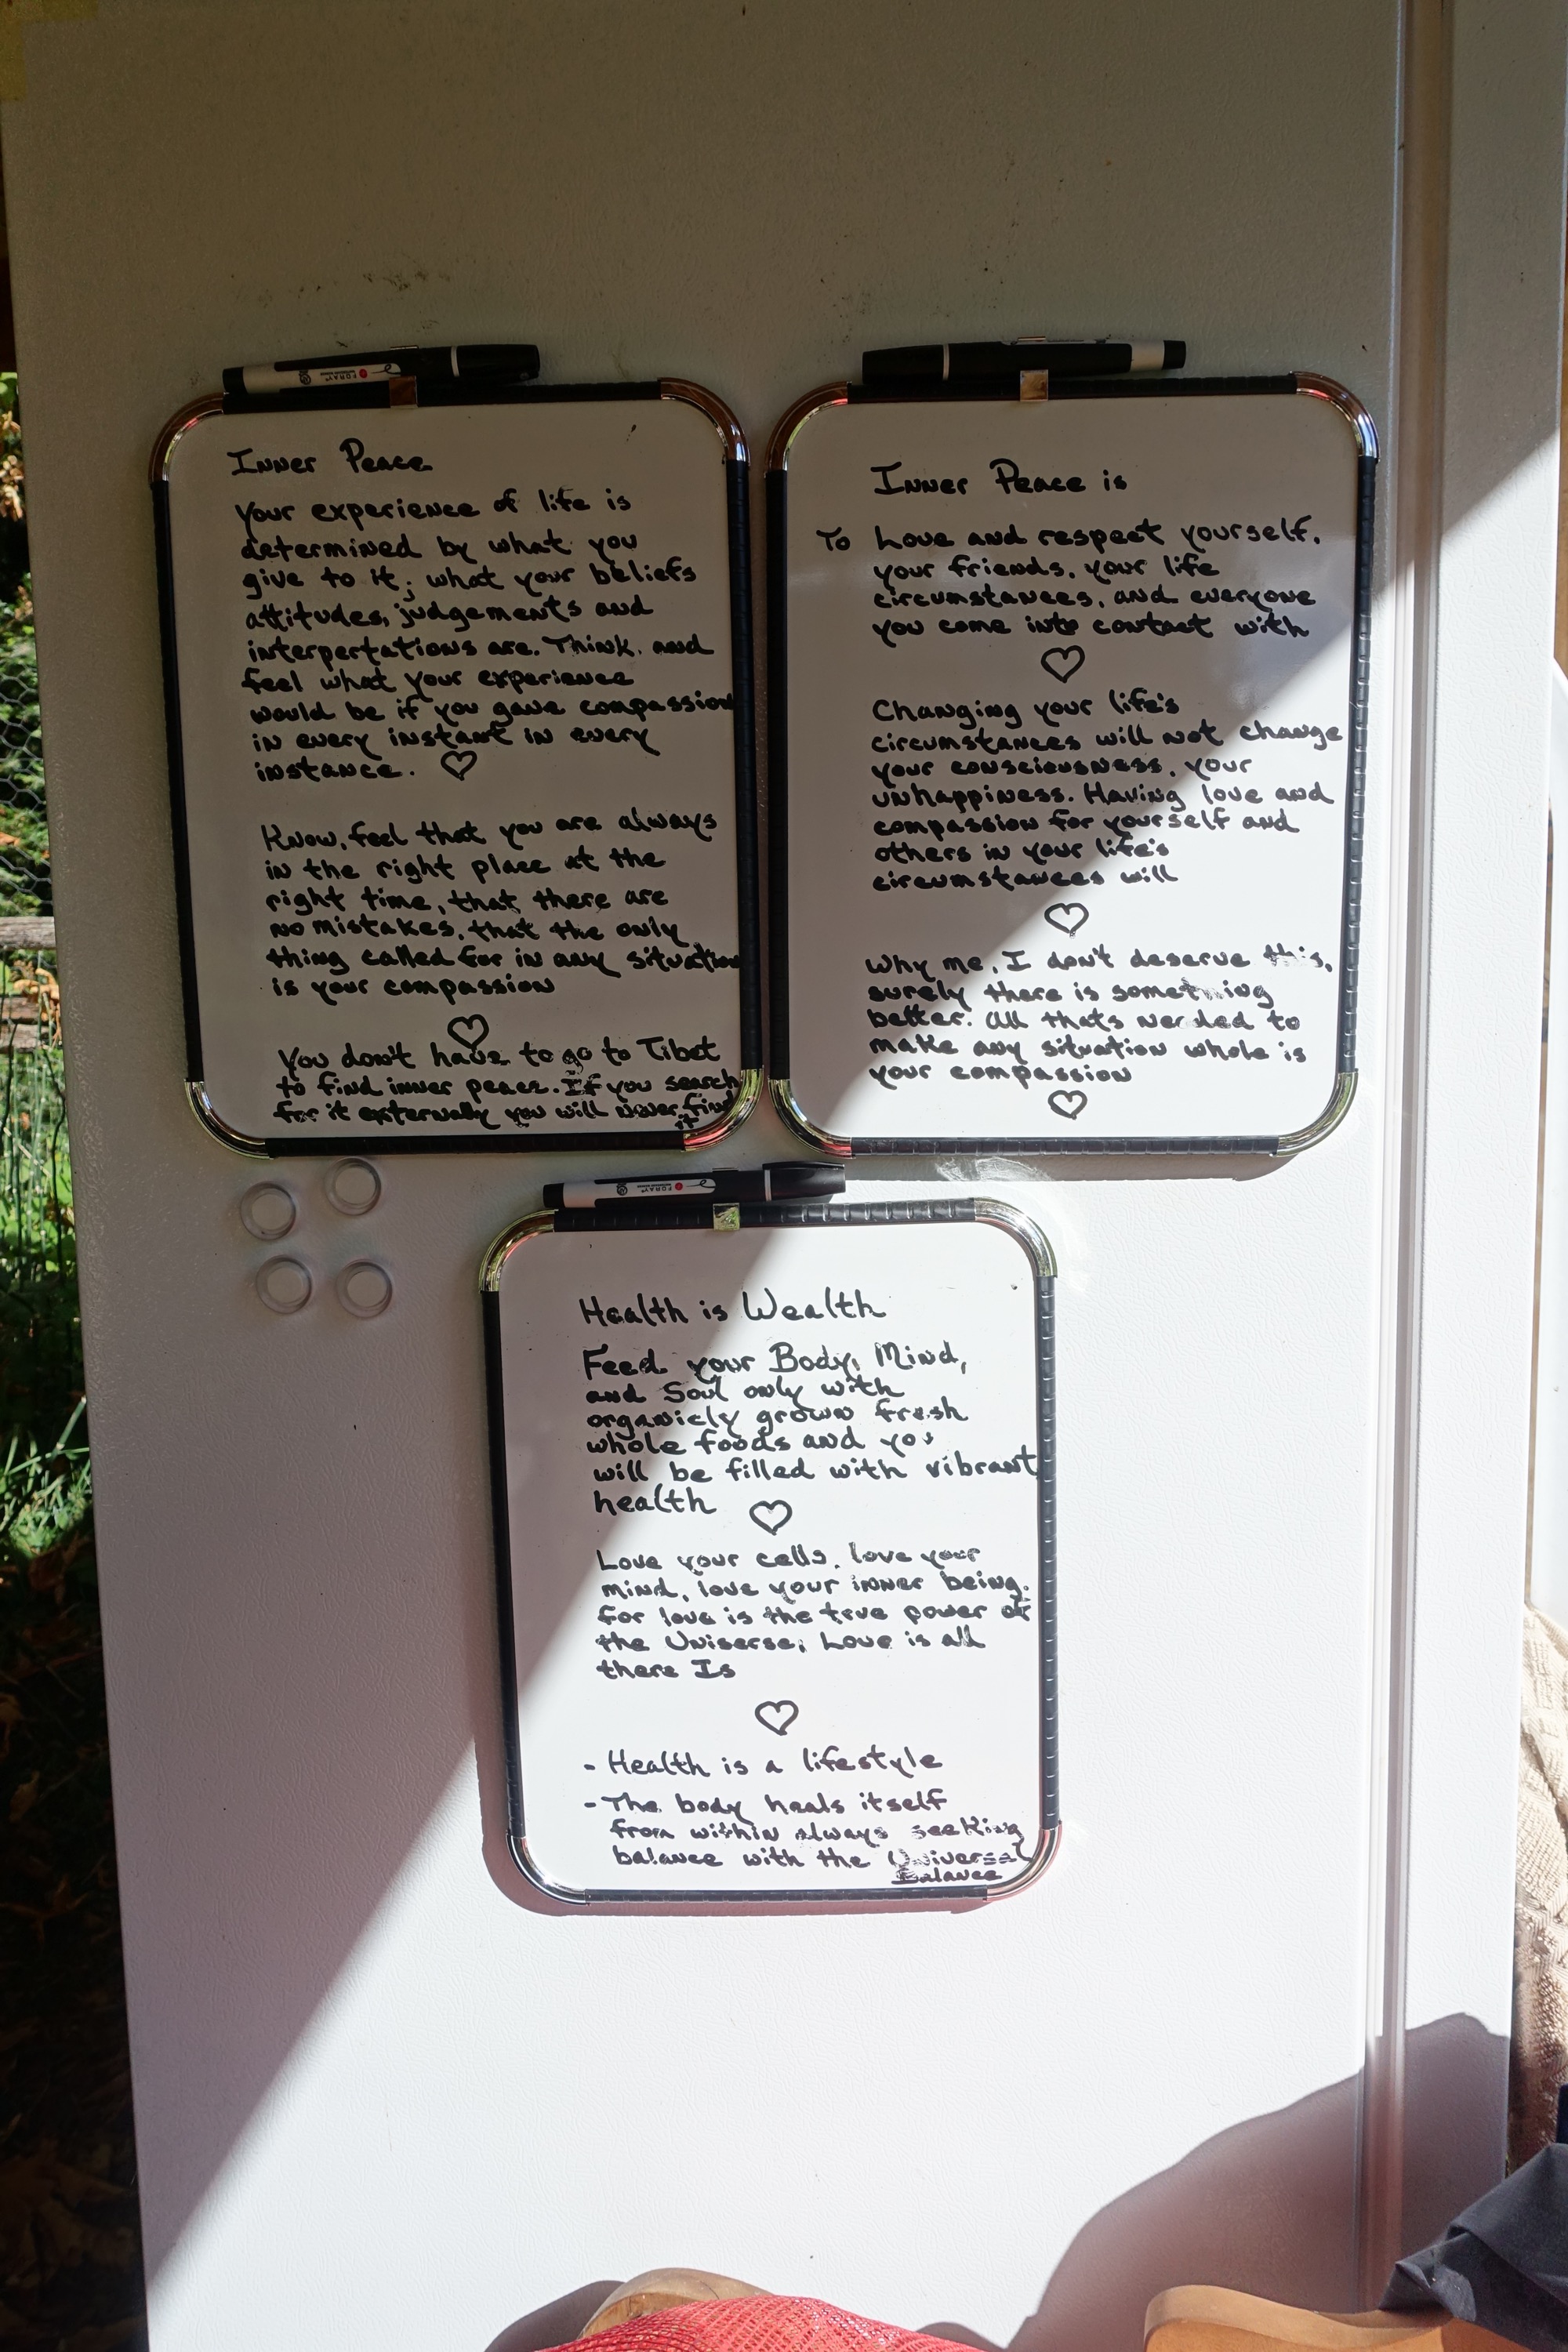 Inner Peace
Your experience of life is
determined by what you
give to it; what your beliefs
attitudes, judgements and
interpertations are. Think, and
feel what your experience
would be if you gave compassion
in every instant in every
instance. ♡
Know, feel that you are always
in the right place at the
right time, that there are
no mistakes, that the only
thing called for in any situation
is your compassion
♡
You don't have to go to Tibet
to find inner peace. If you search
for it externally you will never find
it
Inner Peace is
To Love and respect yourself,
your friends, your life
circumstances, and everyone
you come into contact with
♡
Changing your life's
circumstances will not change
your consciousness, your
unhappiness. Having love and
compassion for yourself and
others in your life's
circumstances will
♡
Why me, I don't deserve this,
surely there is something
better. All thats needed to
make any situation whole is
your compassion
♡
FORAY
Health is Wealth
Feed your Body, Mind,
and Soul only with
organicly grown fresh
whole foods and you
will be filled with vibrant
health ♡
Love your cells, love your
mind, love your inner being.
For love is the true power of
the Universe, Love is all
there Is
♡
- Health is a lifestyle
- The body heals itself
from within always seeking
balance with the Universal
Balance